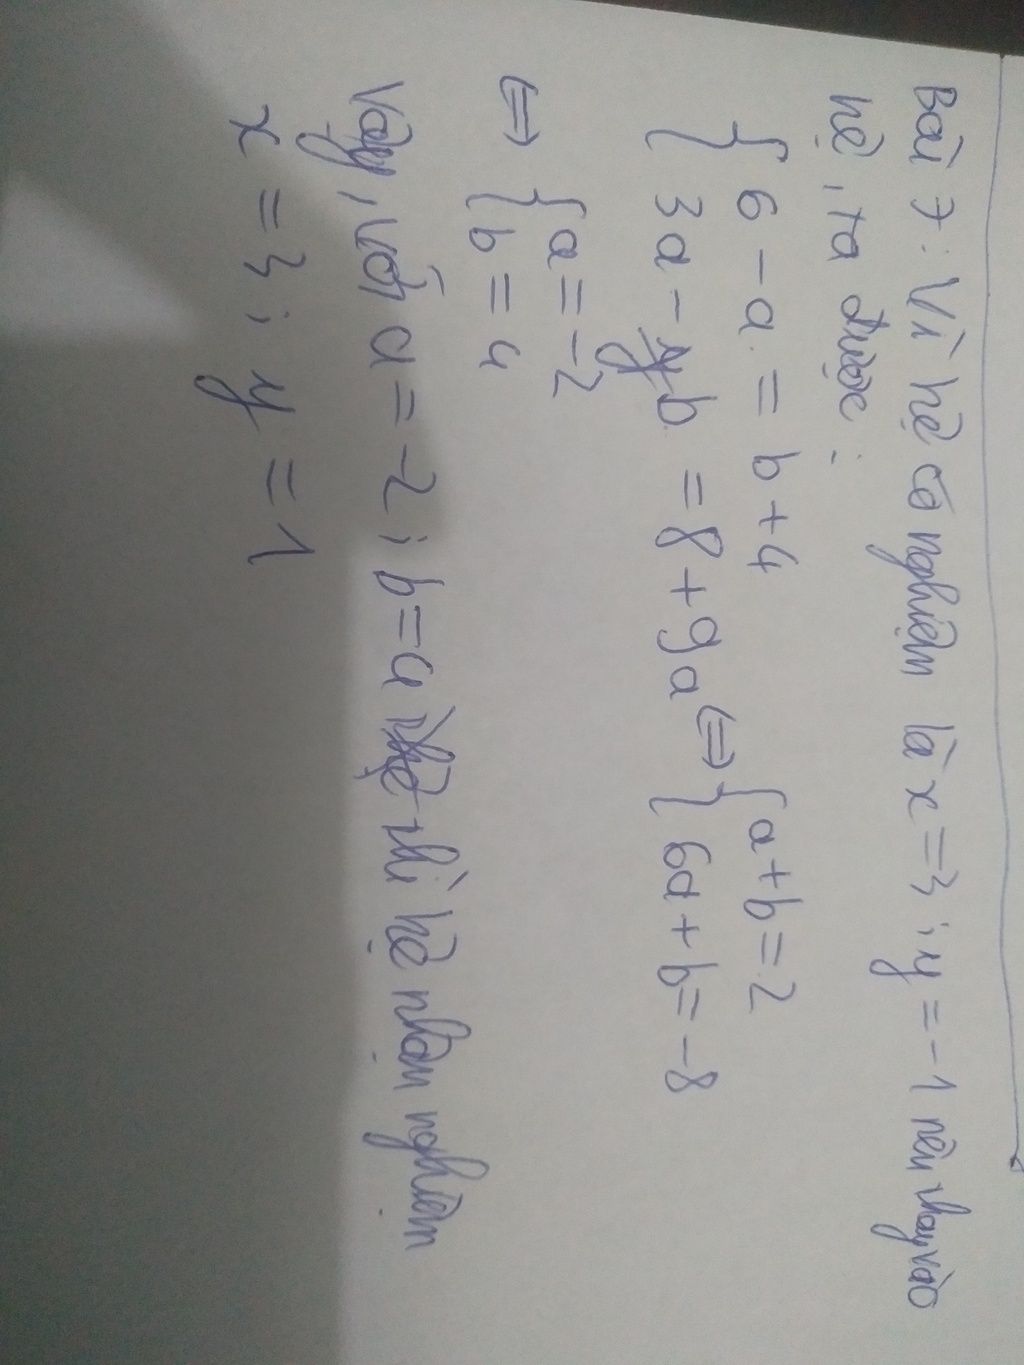 Bài 7: Vì hệ có nghiệm là x = 3 ; y = -1 nên thay vào
hệ, ta được:
{ 6 - a = b + 4
{ 3a - b = 8 + 9a ⇔ { a + b = 2
{ 6a + b = -8
⇔ { a = -2
{ b = 4
Vậy, với a = -2 ; b = 4 thì hệ nhận nghiệm
x = 3 ; y = 1